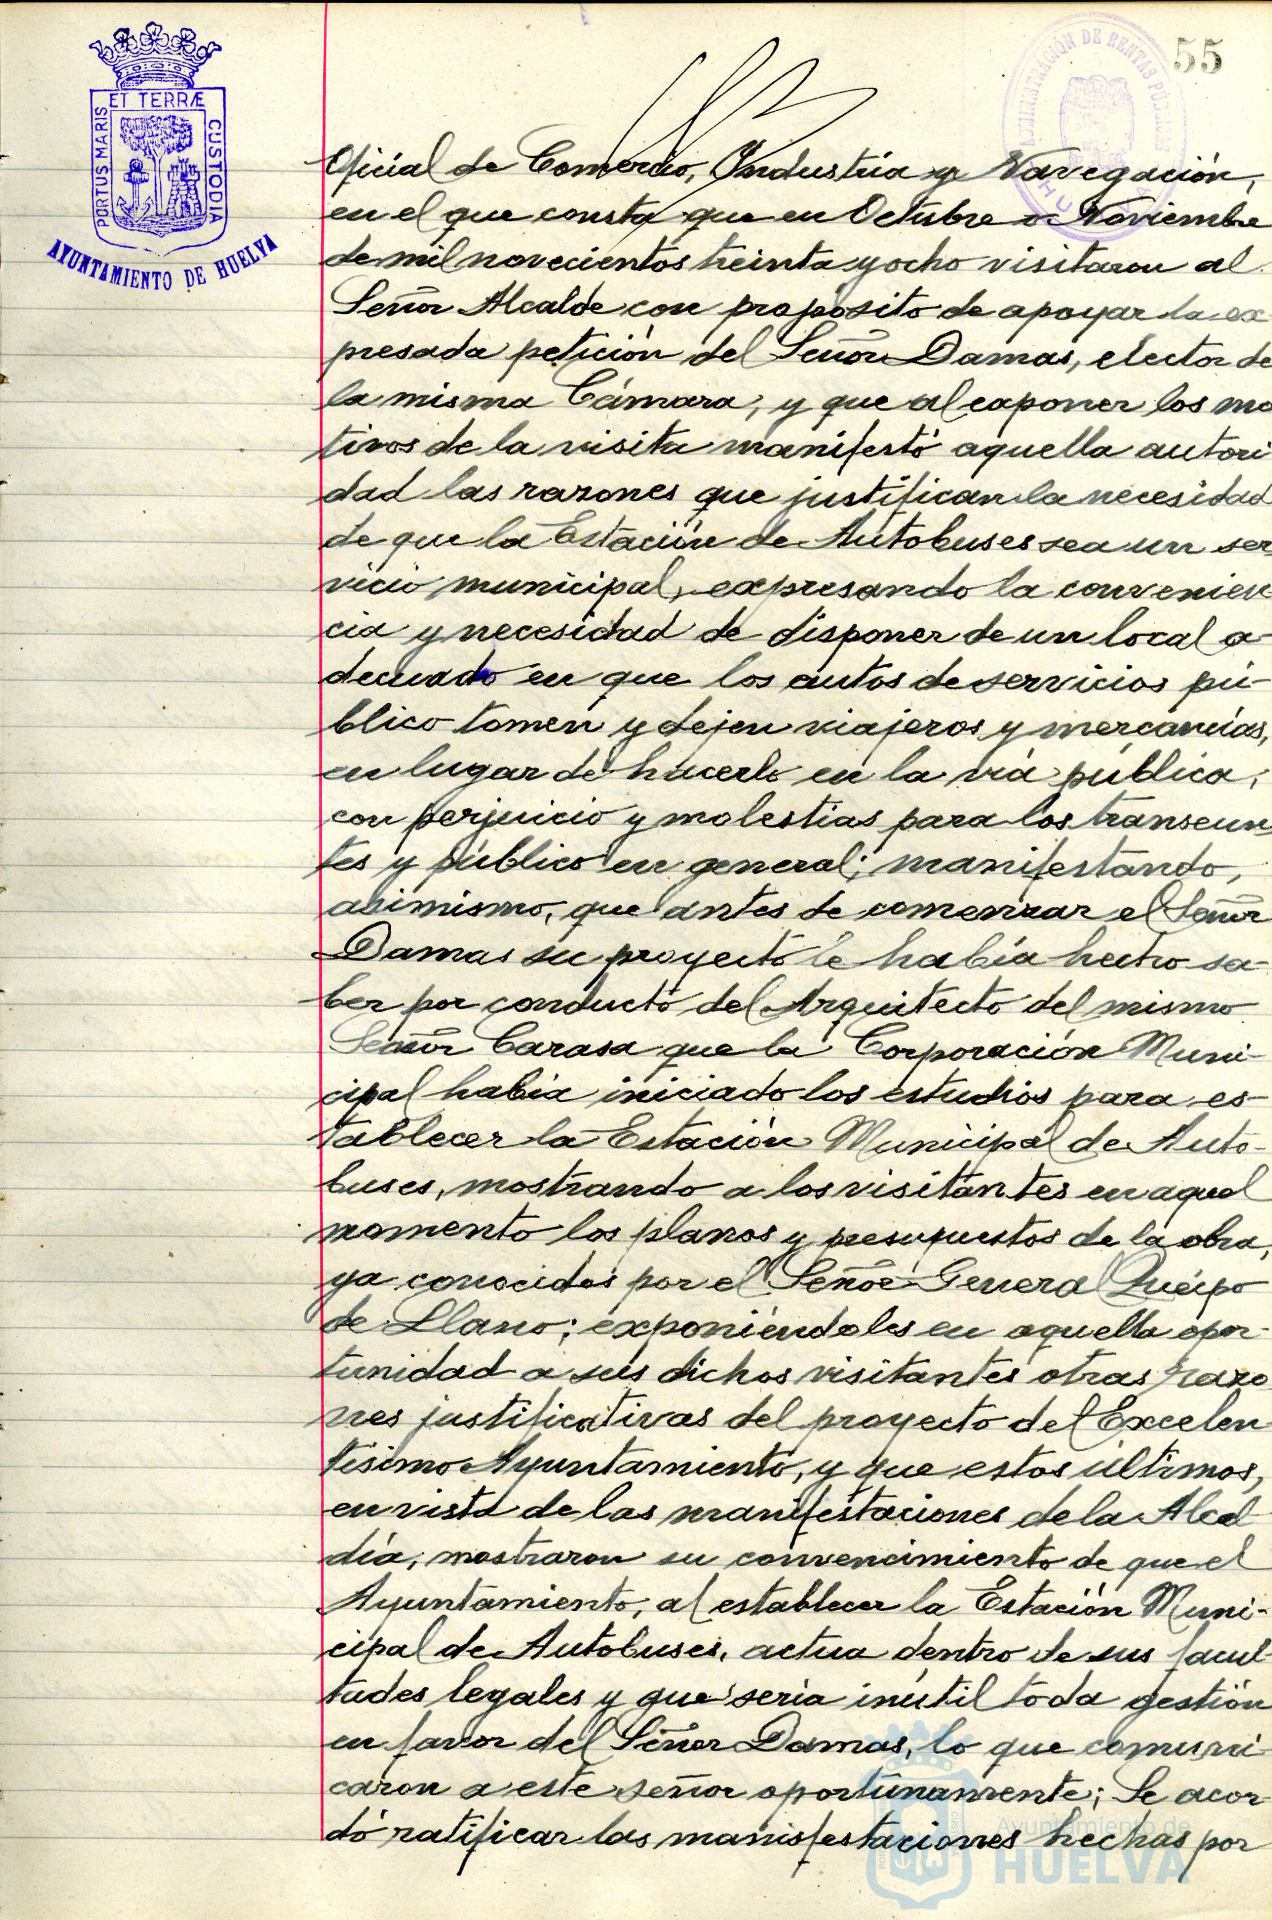 55
PORTUS MARIS ET TERRÆ CUSTODIA
AYUNTAMIENTO DE HUELVA
ADMINISTRACIÓN DE RENTAS PÚBLICAS
Oficial de Comercio, Industria y Navegación,
en el que consta que en Octubre o Noviembre
de mil novecientos treinta y ocho visitaron al
Señor Alcalde con propósito de apoyar la ex
presada petición del Señor Damas, elector de
la misma Cámara, y que al exponer los mo
tivos de la visita manifestó aquella autori
dad las razones que justifican la necesidad
de que la Estación de Autobuses sea un ser
vicio municipal, expresando la convenien
cia y necesidad de disponer de un local a-
decuado en que los autos de servicios pú-
blico tomen y dejen viajeros y mercancías,
en lugar de hacerlo en la vía pública,
con perjuicio y molestias para los transeun
tes y público en general; manifestando,
asimismo, que antes de comenzar el Señor
Damas su proyecto le había hecho sa-
ber por conducto del Arquitecto del mismo
Señor Carasa que la Corporación Muni-
cipal había iniciado los estudios para es-
tablecer la Estación Municipal de Auto-
buses, mostrando a los visitantes en aquel
momento los planos y presupuestos de la obra,
ya conocidos por el Señor General Queipo
de Llano; exponiéndoles en aquella opor-
tunidad a sus dichos visitantes otras razo
nes justificativas del proyecto del Excelen
tísimo Ayuntamiento, y que estos últimos,
en vista de las manifestaciones de la Alcal
día, mostraron su convencimiento de que el
Ayuntamiento, al establecer la Estación Muni-
cipal de Autobuses, actua dentro de sus facul
tades legales y que sería inútil toda gestión
en favor del Señor Damas, lo que comuni
caron a este señor oportunamente; Se acor
dó ratificar las manisfestaciones hechas por
Ayuntamiento de
HUELVA